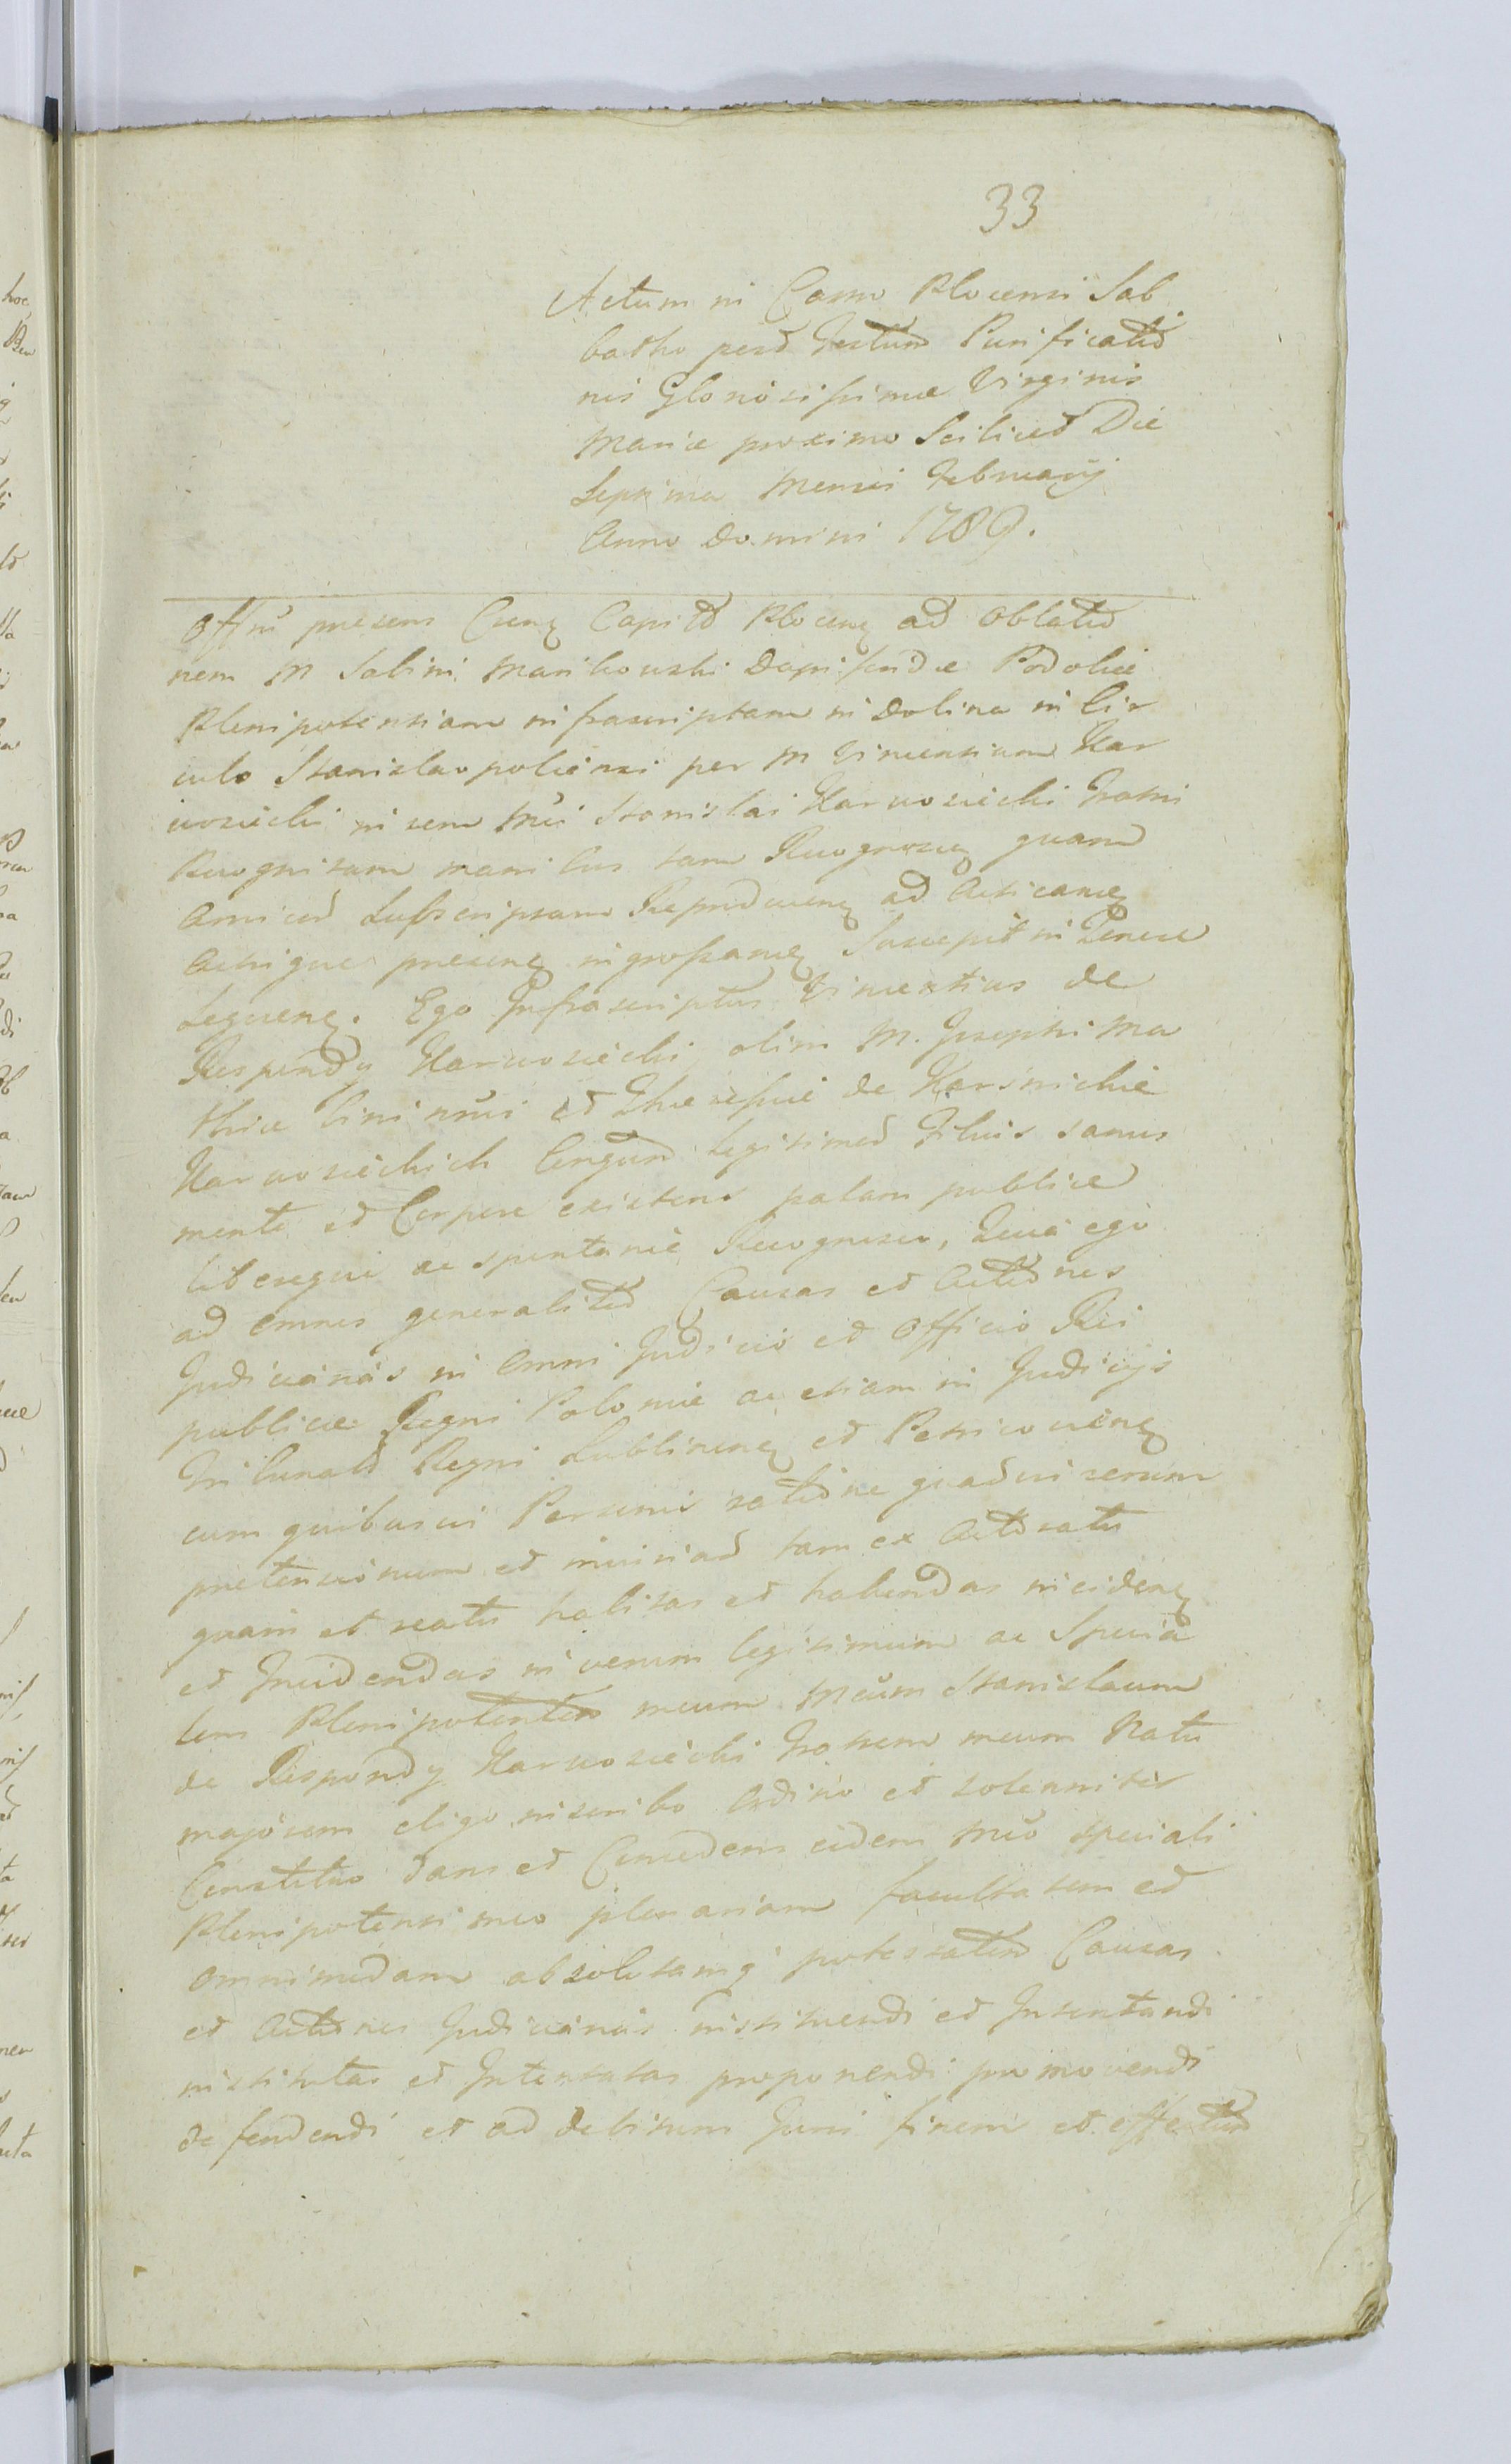 33
Actum in Castro Plocensi Sab
batho post Festum Purificatio
nis Gloriosissimae Virginis
Mariae proximo Scilicet Die
Septima Mensis Februarij
Anno Domini 1789.
Offm presens Cren Capitt Plocen ad Oblatio
nem M Sabini Mankowski Dapiferidae Podoliae
Plenipotentiam infrascriptam in Dolina in Cir
culo Stanislaopoliensi per M Vincentium Kar
wosiecki in rem Mci Stanislai Karwosiecki Fratri
Recognitam manibus tam Recognoscen quam
Amicor Subscriptam Reproducen ad Acticanm
Actique presene ingrossanm Suscepit in Tenore
Sequenm. Ego Infrascriptus Vincentius de
Respondy Karwosiecki olim M. Josephi Ma
thiae bini nmi et Theresiae de Karsnickie
Karwosieckich Conigum legitimor Filius sanus
mente et Corpore existens palam publice
libereque ac spontanie Recognosco, Quia ego
ad omnes generaliter Causas et Actiones
Judiciarias in omni Judicio et Officio Rei
publicae Regni Poloniae ac etiam in Judicijs
Tribunal Regni Lublinen et Petricovien
cum quibusvi Personis ratione quarumvi rerum
pretensionum et iniuriar tam ex Actoratu
quam et reatu habitas et habendas inciden
et Incidendas in verum legitimum ac Specia
lem Plenipotentem meum Mcum Stanislaum
de Respondy Karwosiecki Fratrem meum Natu
majorem eligo inscribo Ordino et solenniter
Constituo dans et Concedens eidem Mco speciali
Plenipotenti meo plenariam facultatem et
omnimodam absolutamq potestatem Causas
et Actiones Judiciarias instituendi et Intentandi
institutas et Intentatas proponendi promovendi
defendendi et ad debitum Juris finem et effectum